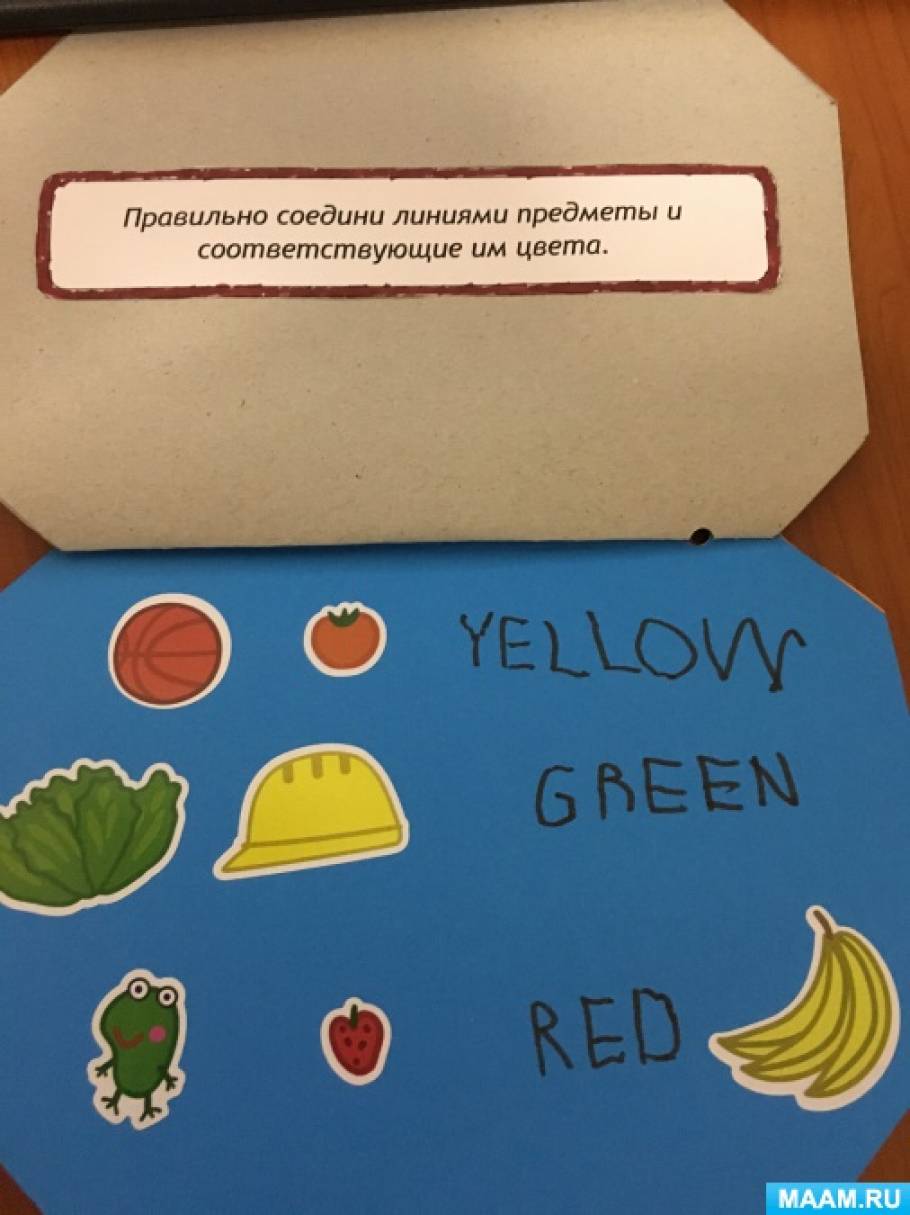 Правильно соедини линиями предметы и
соответствующие им цвета.
YELLOW
GREEN
RED
MAAM.RU